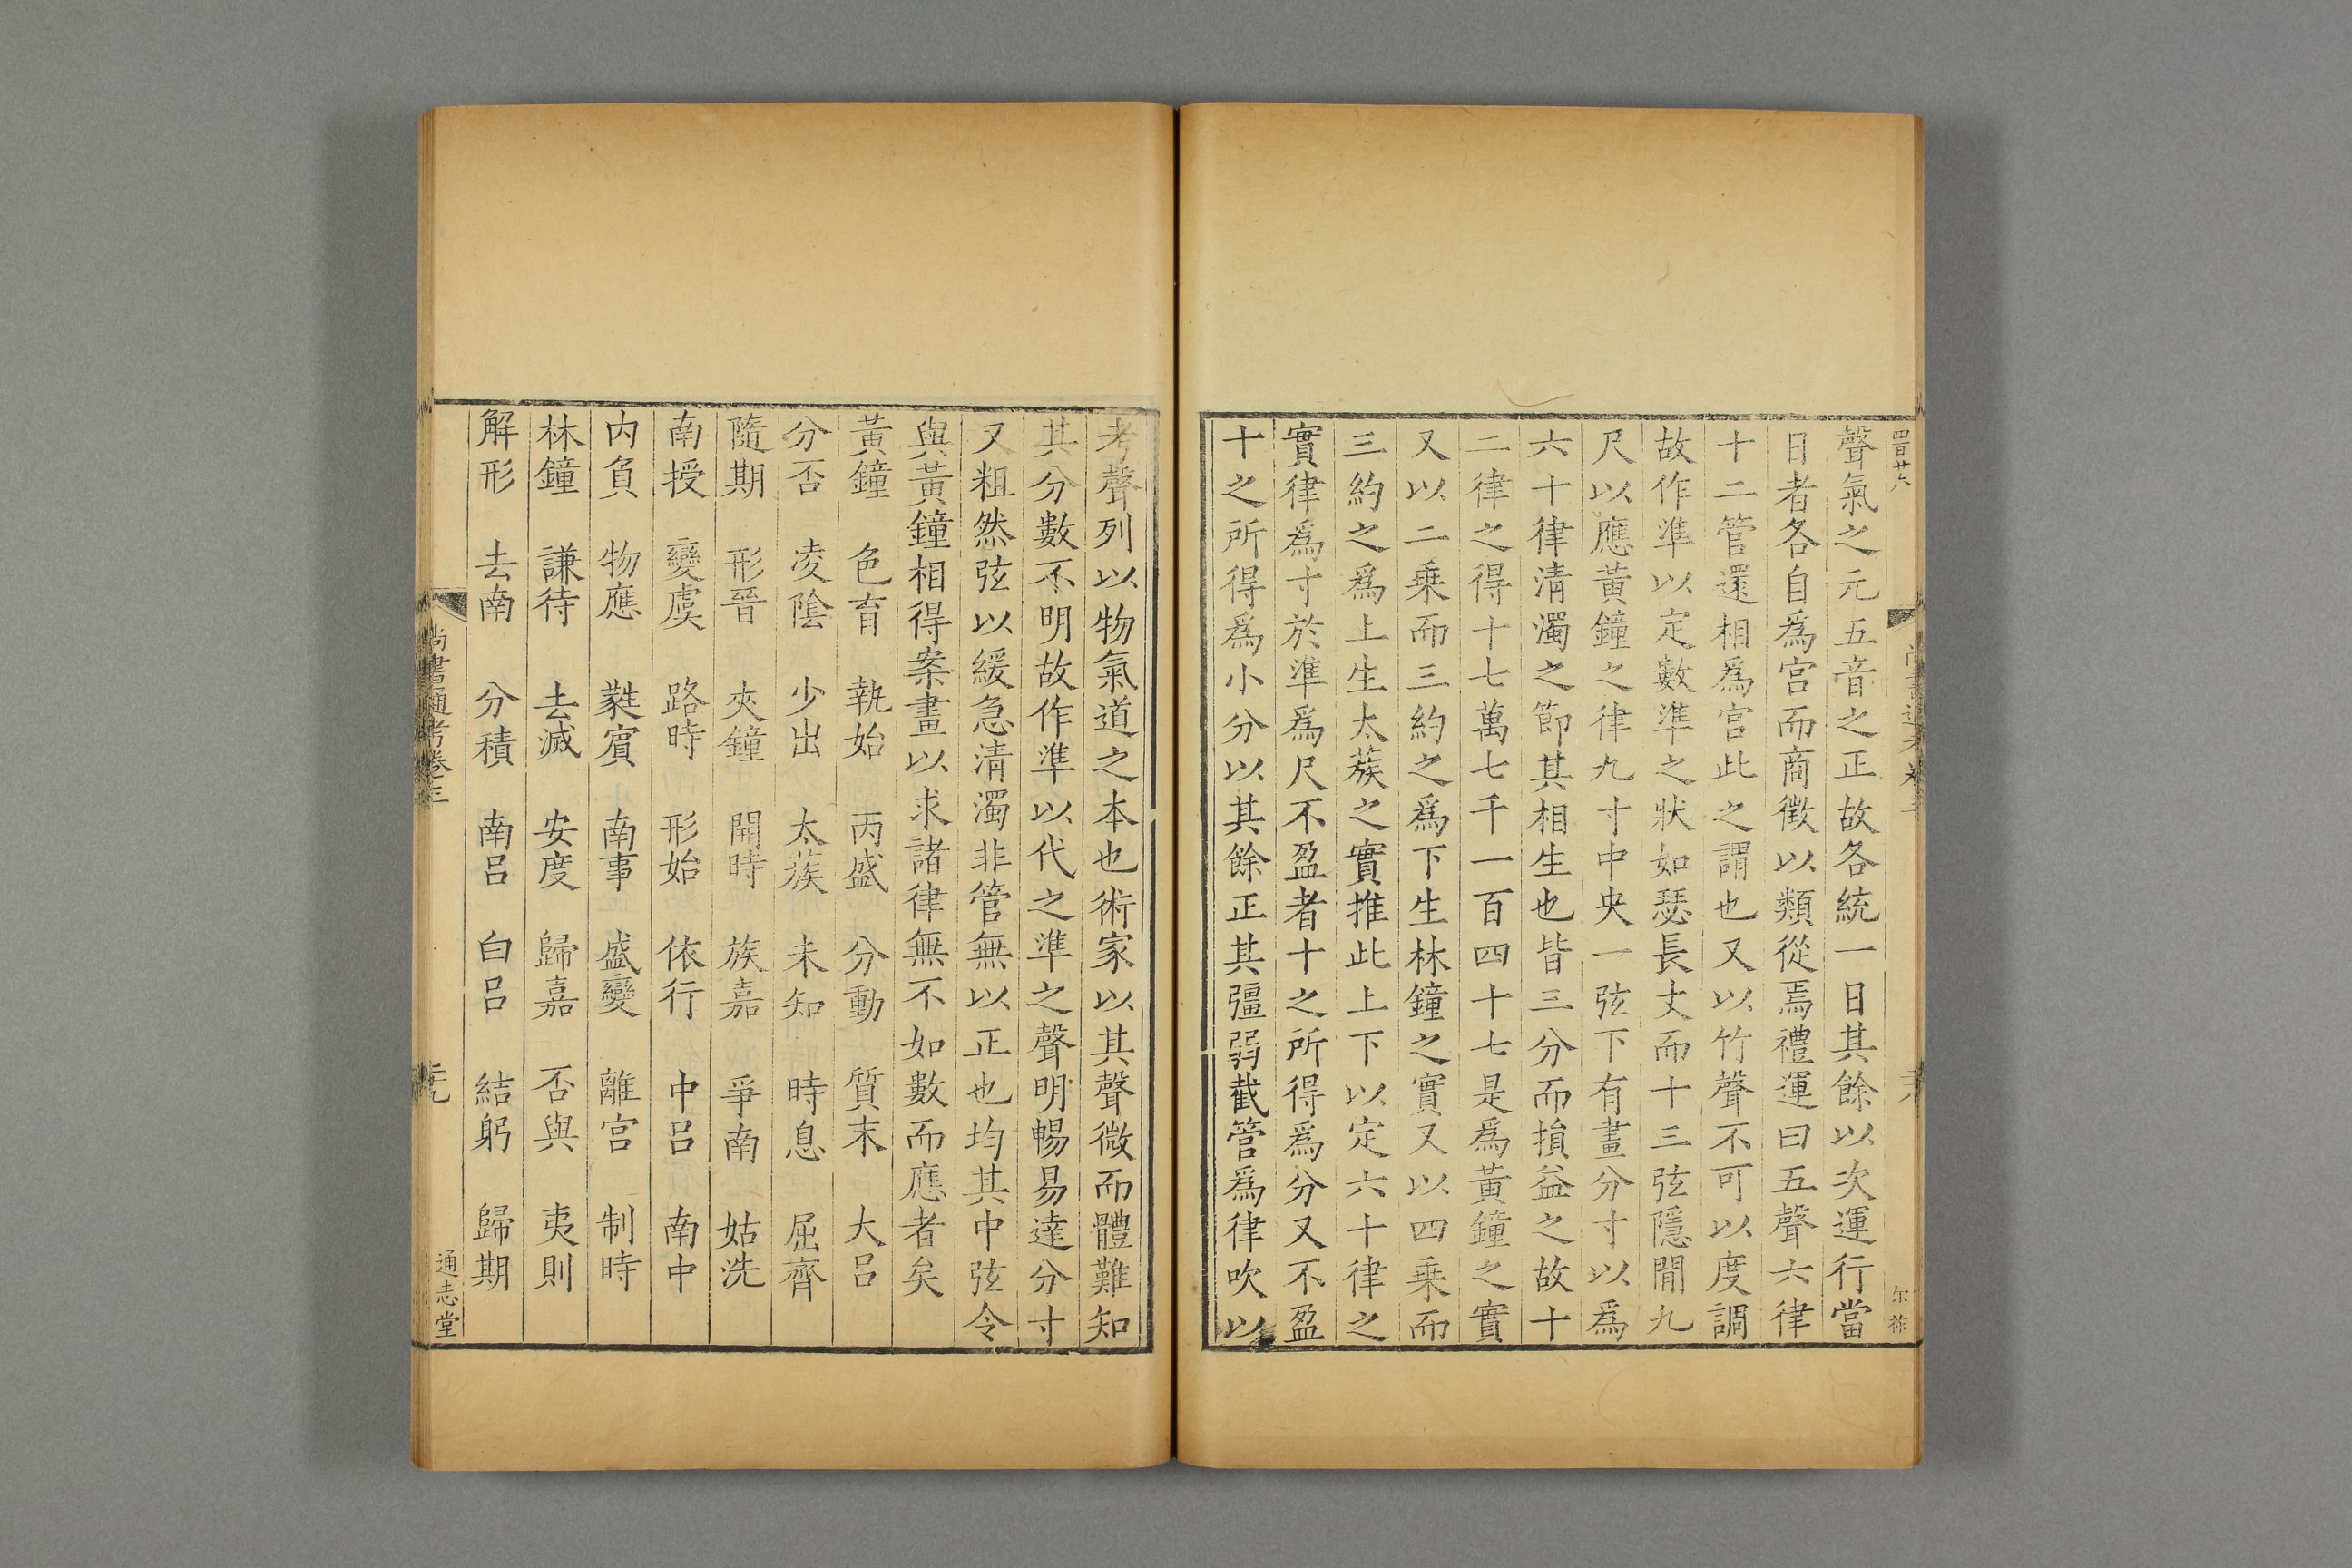 聲氣之元五音之正故各統一日其餘以次運行當
日者各自爲宮而商徵以類從焉禮運曰五聲六律
十二管還相爲宮此之謂也又以竹聲不可以度調
故作準以定數準之狀如瑟長丈而十三弦隱閒九
尺以應黃鐘之律九寸中央一弦下有畫分寸以爲
六十律淸濁之節其相生也皆三分而損益之故十
二律之得十七萬七千一百四十七是爲黃鐘之實
又以二乘而三約之爲下生林鐘之實又以四乘而
三約之爲上生太蔟之實推此上下以定六十律之
實律爲寸於準爲尺不盈者十之所得爲分又不盈
十之所得爲小分以其餘正其彊弱截管爲律吹以
考聲列以物氣道之本也術家以其聲微而體難知
其分數不明故作準以代之準之聲明暢易達分寸
又粗然弦以緩急淸濁非管無以正也均其中弦令
與黃鐘相得案畫以求諸律無不如數而應者矣
黃鐘 色育 執始 丙盛 分動 質末 大呂
分否 凌陰 少出 太蔟 未知 時息 屈齊
隨期 形晉 夾鐘 開時 族嘉 爭南 姑洗
南授 變虞 路時 形始 依行 中呂 南中
內負 物應 蕤賓 南事 盛變 離宮 制時
林鐘 謙待 去滅 安度 歸嘉 否與 夷則
解形 去南 分積 南呂 白呂 結躬 歸期
尚書通考卷三
元
通志堂